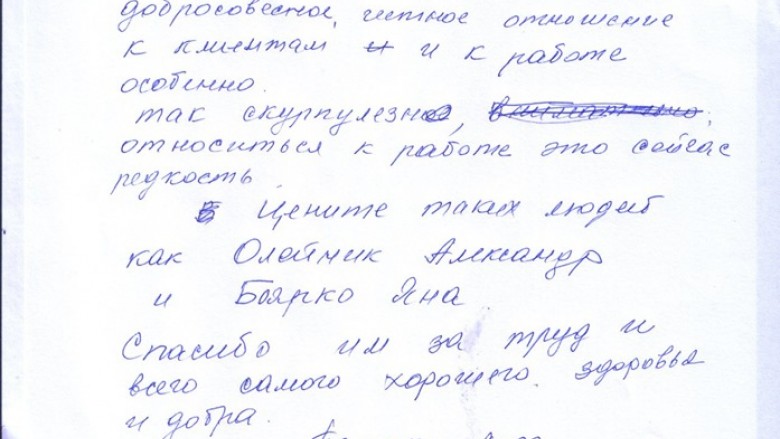 добросовестное, честное отношение
к клиентам и и к работе
особенно.
так скурпулезно, внимательно,
относиться к работе это сейчас
редкость
Цените таких людей
как Олейник Александр
и Боярко Яна
Спасибо им за труд и
всего самого хорошего. здоровья
и добра.